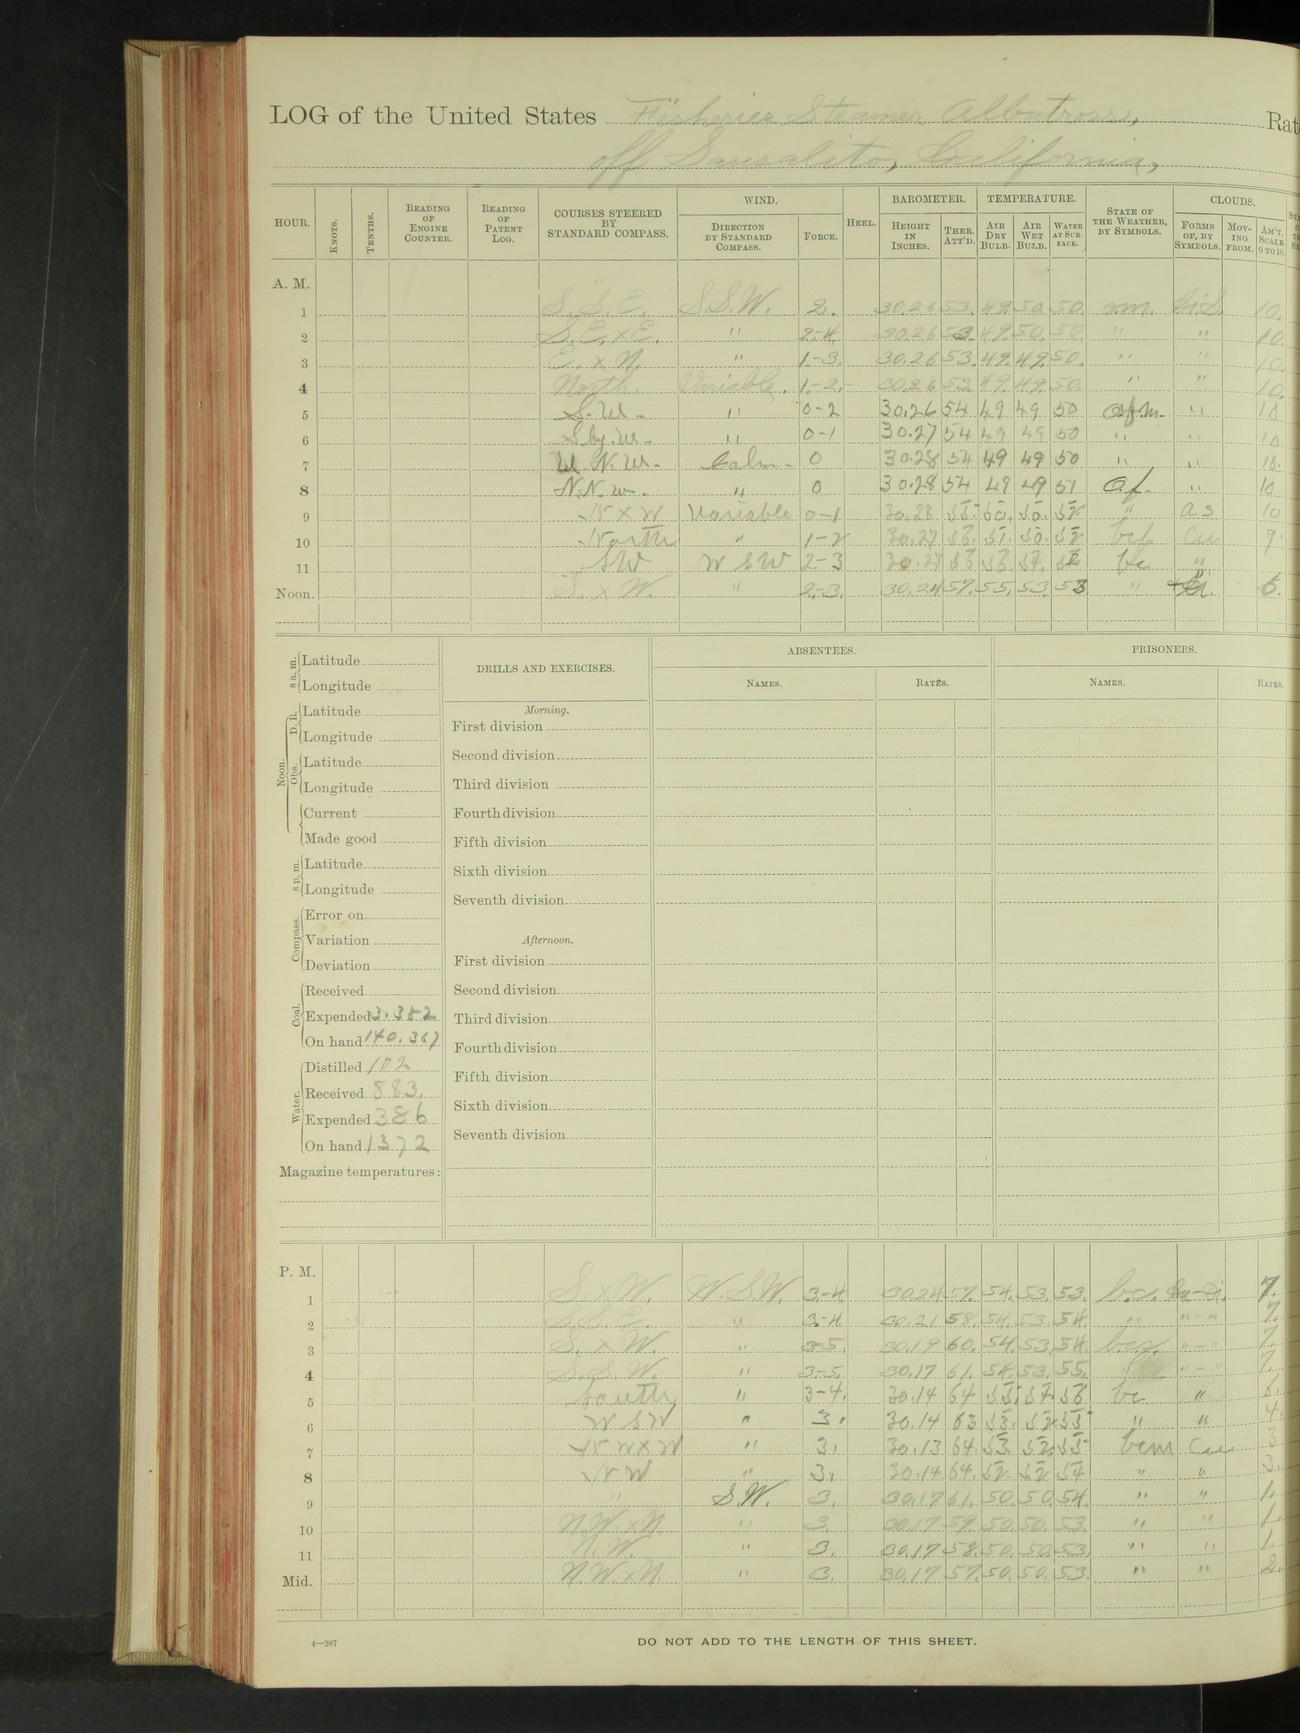 LOG of the United States Fisheries Steamer Albatross, Rat
off Sausalito, California,
HOUR. KNOTS. TENTHS. READING OF ENGINE COUNTER. READING OF PATENT LOG. COURSES STEERED BY STANDARD COMPASS. WIND. DIRECTION BY STANDARD COMPASS. FORCE. HEEL. BAROMETER. HEIGHT IN INCHES. THER. ATT'D. TEMPERATURE. AIR DRY BULB. AIR WET BULB. WATER AT SURFACE. STATE OF THE WEATHER, BY SYMBOLS. CLOUDS. FORMS OF, BY SYMBOLS. MOVING FROM. AM'T. SCALE 0 TO 10.
A. M.
1 S.S.E. S.S.W. 2. 30.26 53. 49. 50. 50. om. 10.
2 S.E.xE. " 2-4. 30.26 53. 49. 50. 50. " " 10.
3 E.xN. " 1-3. 30.26 53. 49. 49. 50. " " 10.
4 North. Variable. 1-2. 30.26 53. 49. 49. 50. " " 10.
5 S.W. " 0-2 30.26 54 49 49 50 ofm. " 10
6 S by. W. " 0-1 30.27 54 49 49 50 " " 10
7 W.N.W. Calm 0 30.28 54 49 49 50 " " 10.
8 N.N.W. " 0 30.28 54 49 49 51 Of. " 10
9 NxW Variable 0-1 30.28 55 50. 50. 52. " as 10
10 North " 1-2 30.27 56. 51. 50. 52 bcf cu 9.
11 SW W SW 2-3 30.27 52 bc "
Noon. S x W. " 2-3. 30.24 57. 55. 53. 53 " 6.
8 a. m. Latitude
Longitude
Noon. D. R. Latitude
Longitude
Obs. Latitude
Longitude
Current
Made good
8 p. m. Latitude
Longitude
Compass. Error on
Variation
Deviation
Coal. Received
Expended 3.352
On hand 140.367
Water. Distilled 102
Received 883.
Expended 386
On hand 1372
Magazine temperatures:
DRILLS AND EXERCISES.
Morning.
First division
Second division
Third division
Fourth division
Fifth division
Sixth division
Seventh division
Afternoon.
First division
Second division
Third division
Fourth division
Fifth division
Sixth division
Seventh division
ABSENTEES.
NAMES. RATES.
PRISONERS.
NAMES. RATES.
P. M.
1 S.xW. W.S.W. 3-4 30.24 57. 54. 53. 53. bc. 7.
2 S.S.E. " 3-4 30.21 58. 54. 53. 54. " "-" 7.
3 S.xW. " 3-5 30.19 60. 54. 53. 54. bcz. "-" 7.
4 S.S.W. " 3-5 30.17 61. 54. 53. 55. " "-" 7.
5 South " 3-4. 30.14 64 55. 54. 56 bc " 6.
6 W SW " 3. 30.14 63 53. 52. 55 " " 4.
7 NWxW " 3. 30.13 64. 53 52. 55 bcm Cu 3
8 NW " 3. 30.14 64. 52. 52 54 " " 3.
9 " S.W. 3. 30.17 61. 50. 50. 54. " " 1.
10 N.W.xN. " 3. 30.17 59. 50. 50. 53. " " 1.
11 N.W. " 3. 30.17 58. 50. 50. 53. " " 1.
Mid. N.W.xN. " 3. 30.17 57. 50. 50. 53. " " 2.
4—287
DO NOT ADD TO THE LENGTH OF THIS SHEET.